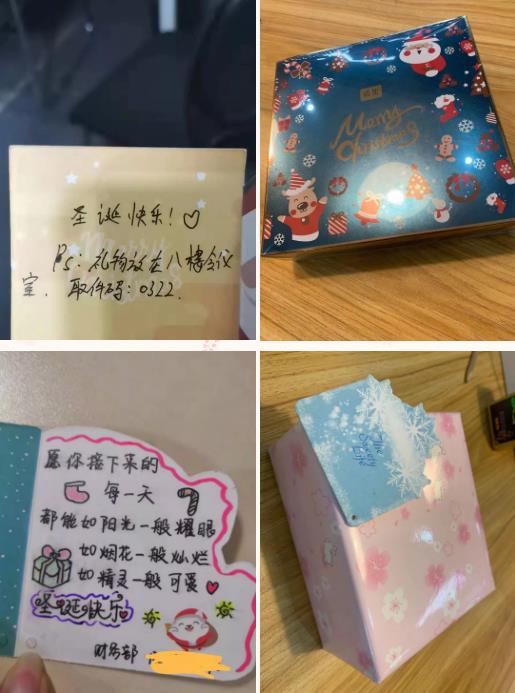 圣诞快乐!♡
Ps:礼物放在八楼会议
室.取件码:0322.
Merry
Christmas
愿你接下来的
每一天
都能如阳光一般耀眼
如烟花一般灿烂
如精灵一般可爱
圣诞快乐
财务部